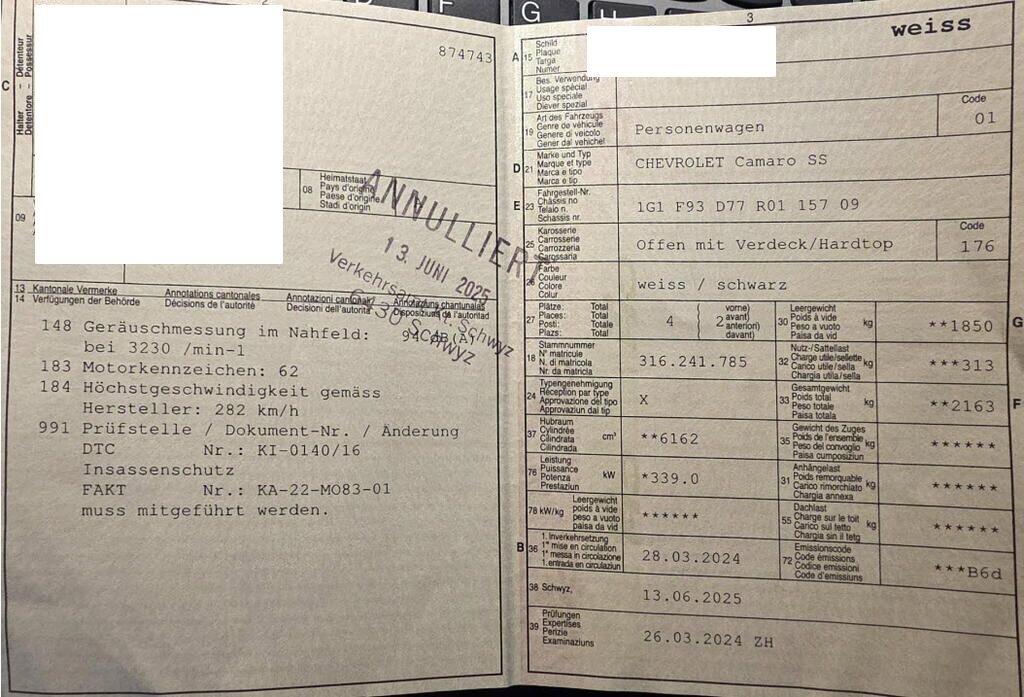 G
874743
C
Halter – Détenteur
Detentore – Possessur
08 Heimatstaat
Pays d'origine
Paese d'origine
Stadi d'origin
09
ANNULLIERT
13. JUNI 2025
Schwyz
6430 Schwyz
13 Kantonale Vermerke Annotations cantonales Annotazioni cantonali Annotaziuns chantunalas
14 Verfügungen der Behörde Décisions de l'autorité Decisioni dell'autorità Disposiziuns da l'autoritad
148 Geräuschmessung im Nahfeld: 94 dB(A)
bei 3230 /min-1
183 Motorkennzeichen: 62
184 Höchstgeschwindigkeit gemäss
Hersteller: 282 km/h
991 Prüfstelle / Dokument-Nr. / Änderung
DTC Nr.: KI-0140/16
Insassenschutz
FAKT Nr.: KA-22-MO83-01
muss mitgeführt werden.
3
weiss
A 15 Schild
Plaque
Targa
Numer
17 Bes. Verwendung
Usage spécial
Uso speciale
Diever spezial
19 Art des Fahrzeugs
Genre de véhicule
Genere di veicolo
Gener dal vehichel
Personenwagen
Code
01
D 21 Marke und Typ
Marque et type
Marca e tipo
Marca e tip
CHEVROLET Camaro SS
E 23 Fahrgestell-Nr.
Châssis no
Telaio n.
Schassis nr.
1G1 F93 D77 R01 157 09
25 Karosserie
Carrosserie
Carrozzeria
Carossaria
Offen mit Verdeck/Hardtop
Code
176
26 Farbe
Couleur
Colore
Colur
weiss / schwarz
27 Plätze: Total
Places: Total
Posti: Totale
Plazs: Total
4 ( 2 vorne)
avant)
anteriori)
davant)
30 Leergewicht
Poids à vide
Peso a vuoto
Paisa da vid
kg
**1850
G
18 Stammnummer
N° matricule
N. di matricola
Nr. da matricla
316.241.785
32 Nutz-/Sattellast
Charge utile/sellette
Carico utile/sella
Chargia utila/sella
kg
***313
24 Typengenehmigung
Réception par type
Approvazione del tipo
Approvaziun dal tip
X
33 Gesamtgewicht
Poids total
Peso totale
Paisa totala
kg
**2163
F
37 Hubraum
Cylindrée
Cilindrata
Cilindrada
cm³
**6162
35 Gewicht des Zuges
Poids de l'ensemble
Peso del convoglio
Paisa cumposiziun
kg
******
76 Leistung
Puissance
Potenza
Prestaziun
kW
*339.0
31 Anhängelast
Poids remorquable
Carico rimorchiato
Chargia annexa
kg
******
78 kW/kg Leergewicht
poids à vide
peso a vuoto
paisa da vid
******
55 Dachlast
Charge sur le toit
Carico sul tetto
Chargia sin il tetg
kg
******
B 36 1. Inverkehrsetzung
1re mise en circulation
1a messa in circolazione
1. entrada en circulaziun
28.03.2024
72 Emissionscode
Code émissions
Codice emissioni
Code d'emissiuns
***B6d
38 Schwyz,
13.06.2025
39 Prüfungen
Expertises
Perizie
Examinaziuns
26.03.2024 ZH